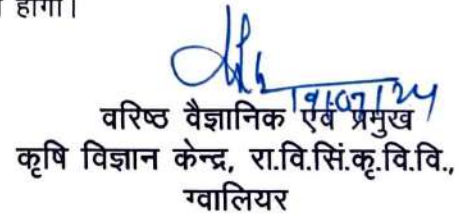 होगा।
19/07/24
वरिष्ठ वैज्ञानिक एवं प्रमुख
कृषि विज्ञान केन्द्र, रा.वि.सिं.कृ.वि.वि.,
ग्वालियर